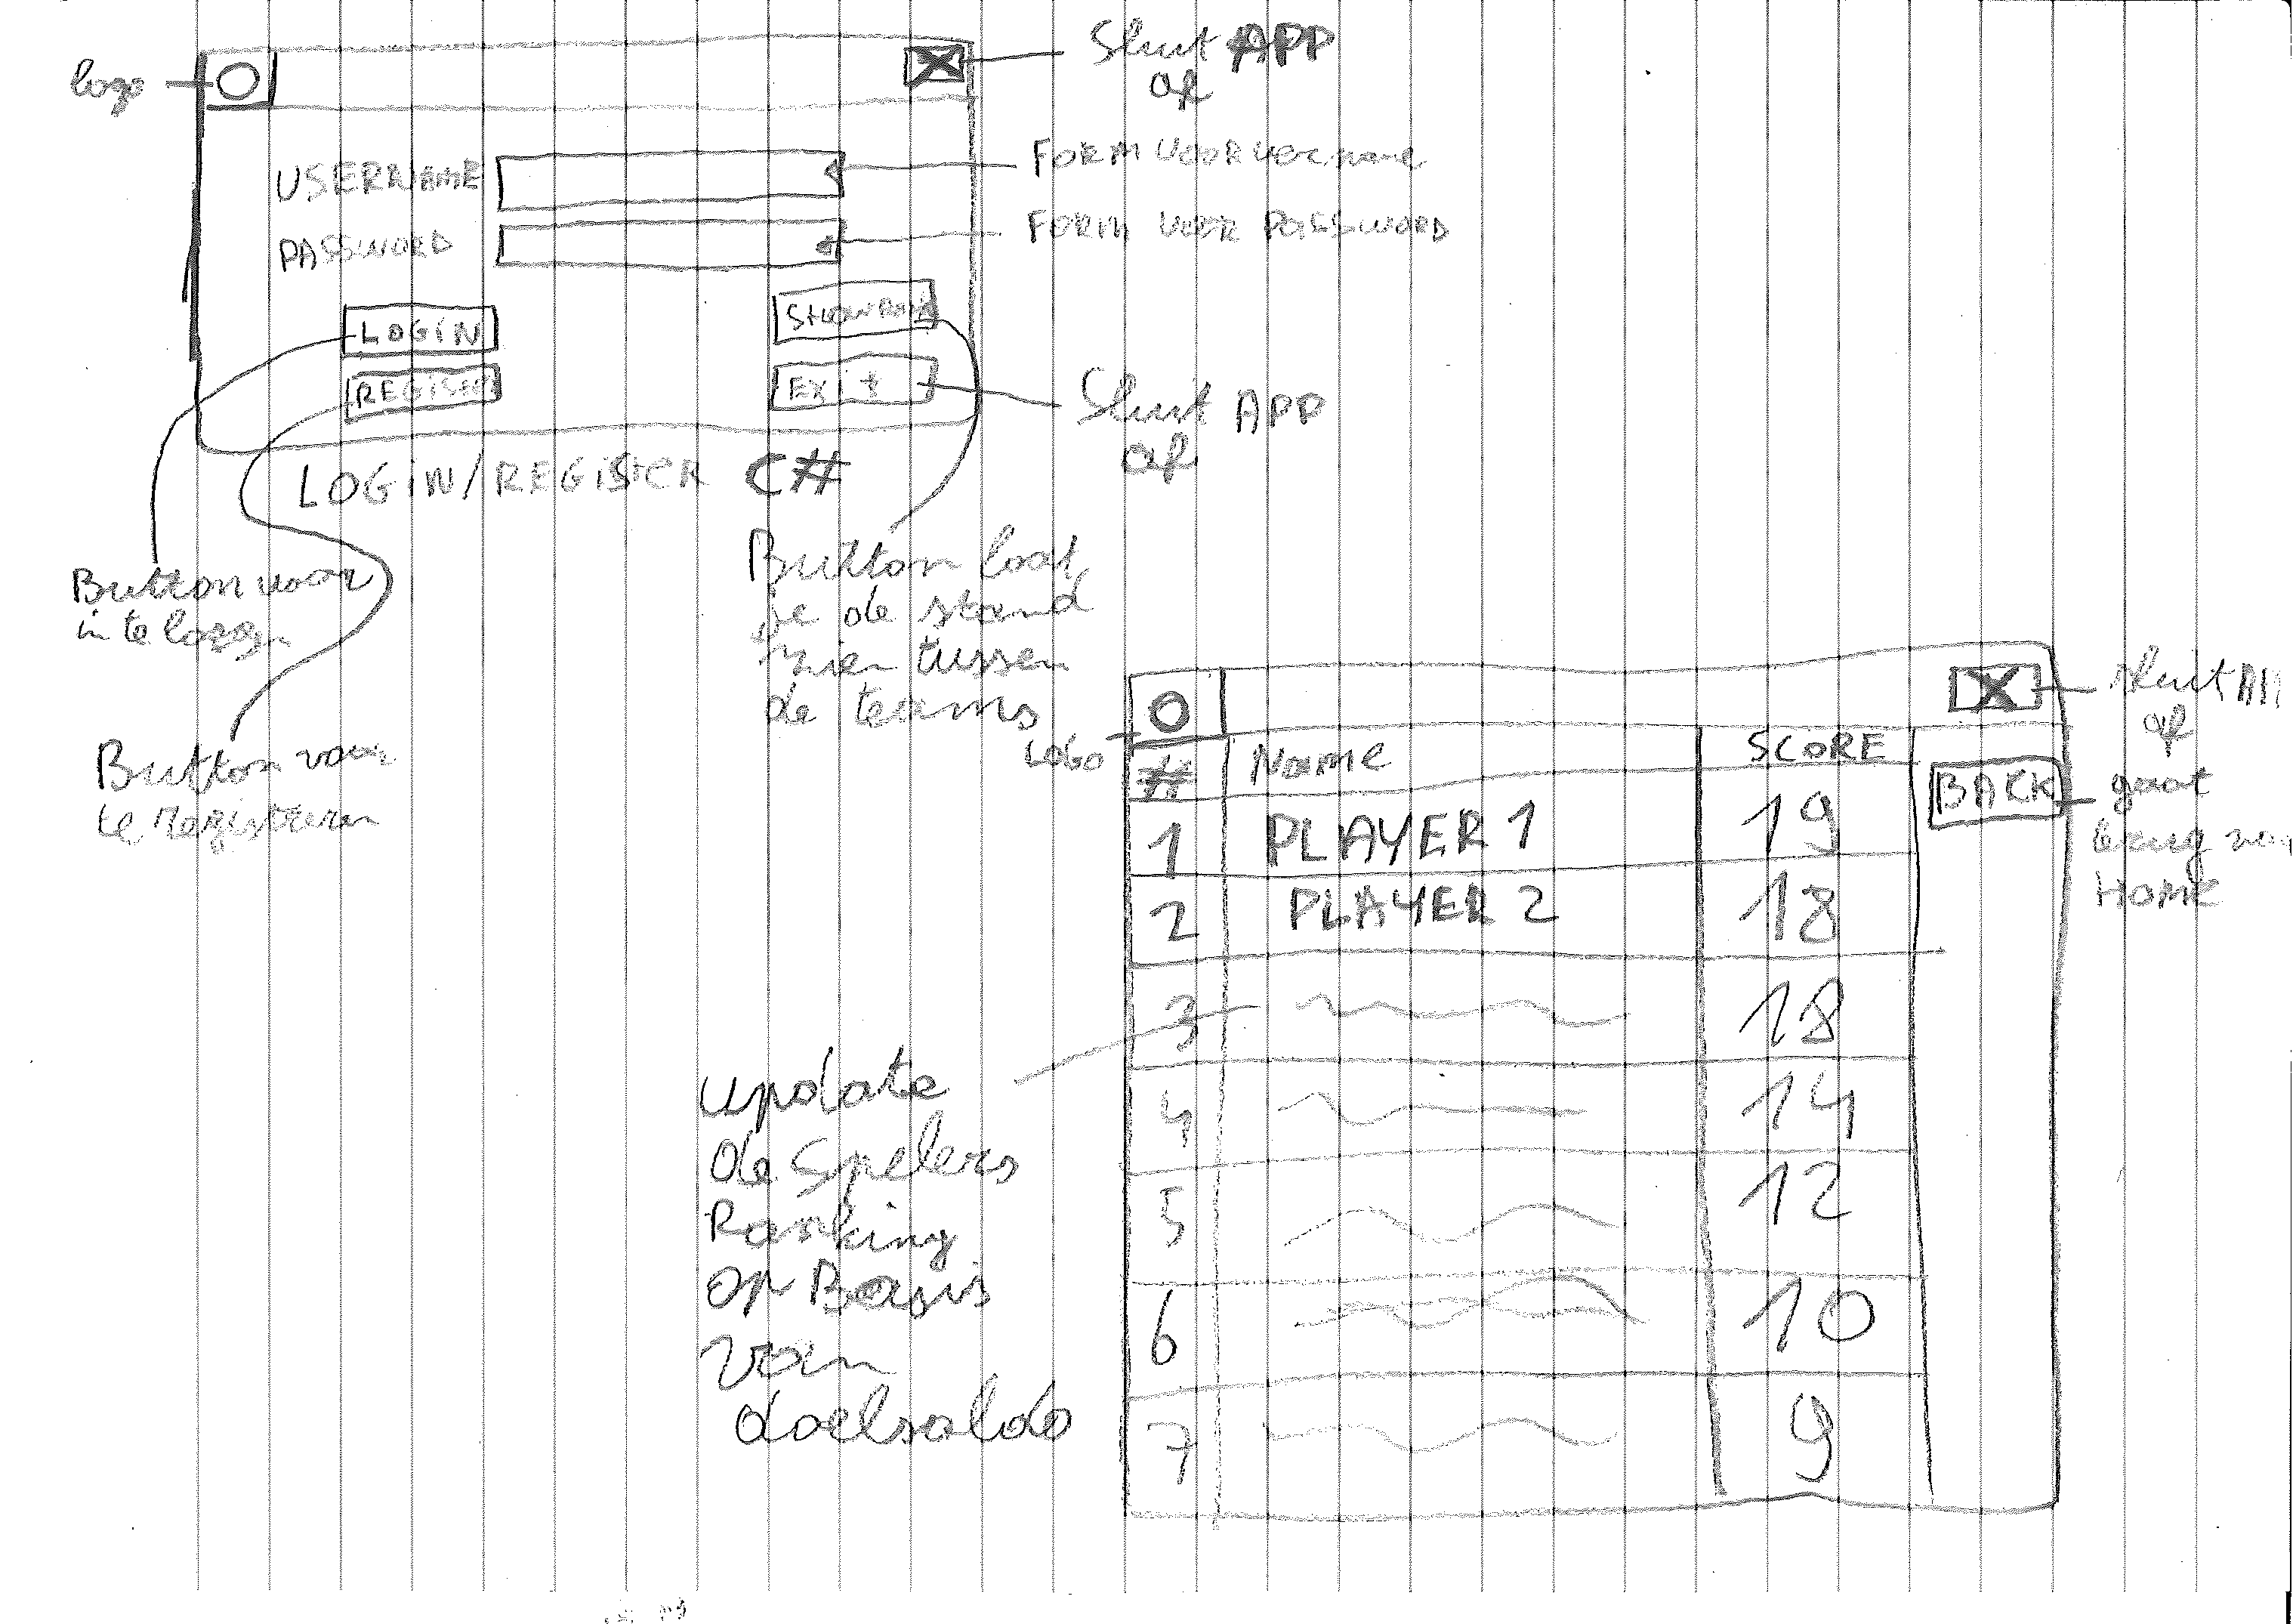 logo
Sluit APP
af
USERNAME
FORM VOOR username
PASSWORD
FORM VOOR PASSWORD
LOGIN
REGISTER
EXit
Sluit APP
af
LOGIN/REGISTER C#
Button voor
in te loggen
Button voor
te registreren
Button laat
je de stand
zien tussen
de teams
LOGO
sluit
af
BACK
gaat
terug
HOME
# Name SCORE
1 PLAYER 1 19
2 PLAYER 2 18
3 18
4 14
5 12
6 10
7 9
update
de spelers
Ranking
op Basis
van
doelsaldo